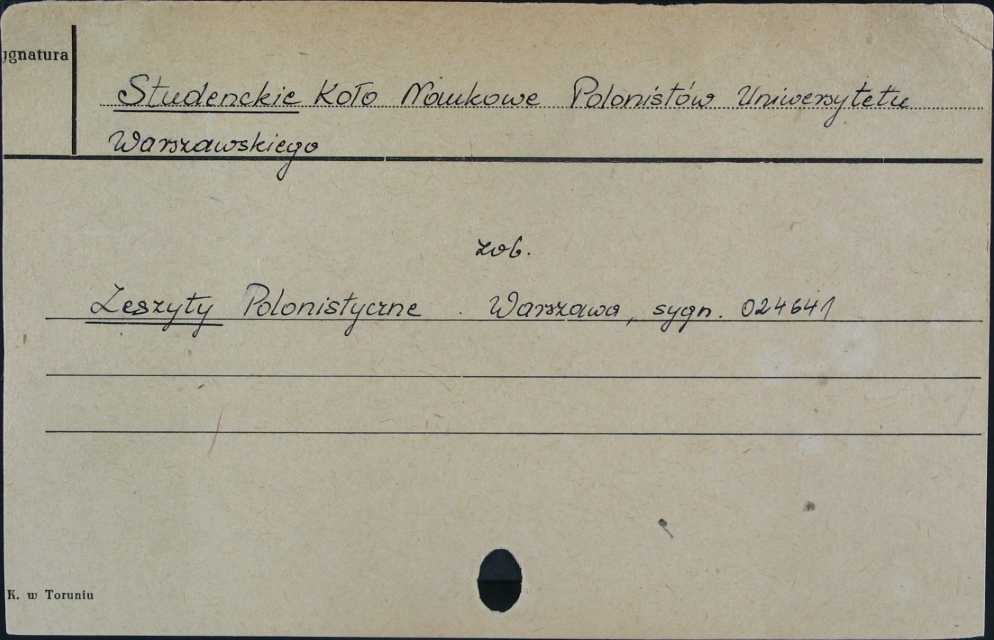 ygnatura
Studenckie Koło Naukowe Polonistów Uniwersytetu
Warszawskiego
zob.
Zeszyty Polonistyczne. Warszawa, sygn. 024641
K. w Toruniu